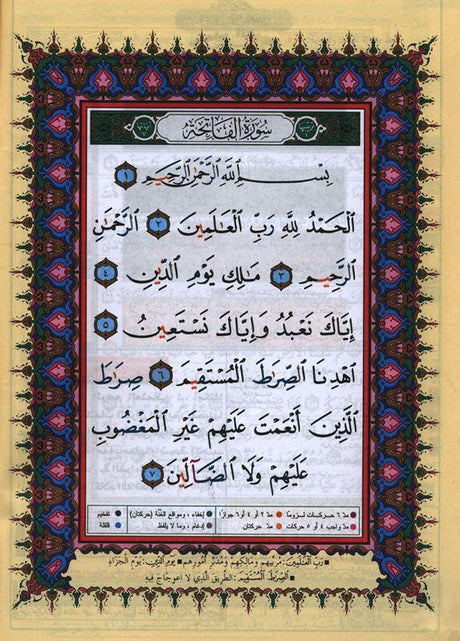 سُورَةُ الفَاتِحَة
بِسْمِ اللَّهِ الرَّحْمَٰنِ الرَّحِيمِ ١
الْحَمْدُ لِلَّهِ رَبِّ الْعَالَمِينَ ٢ الرَّحْمَٰنِ
الرَّحِيمِ ٣ مَالِكِ يَوْمِ الدِّينِ ٤
إِيَّاكَ نَعْبُدُ وَإِيَّاكَ نَسْتَعِينُ ٥
اهْدِنَا الصِّرَاطَ الْمُسْتَقِيمَ ٦ صِرَاطَ
الَّذِينَ أَنْعَمْتَ عَلَيْهِمْ غَيْرِ الْمَغْضُوبِ
عَلَيْهِمْ وَلَا الضَّالِّينَ ٧
مدّ ٦ حركات لزومًا مدّ ٢ أو ٤ أو ٦ جوازًا إخفاء، ومواقع الغُنَّة (حركتان) تفخيم
مدّ واجب ٤ أو ٥ حركات مدّ حركتان إدغام، وما لا يُلفظ قلقلة
رَبِّ العَالَمِينَ: مُرَبِّيهِم وَمَالِكِهِم وَمُدَبِّرِ أُمُورِهِم يَوْمِ الدِّينِ: يَوْمِ الجَزَاءِ
الصِّرَاطَ المُسْتَقِيمَ: الطَّرِيقَ الَّذِي لَا اعْوِجَاجَ فِيهِ